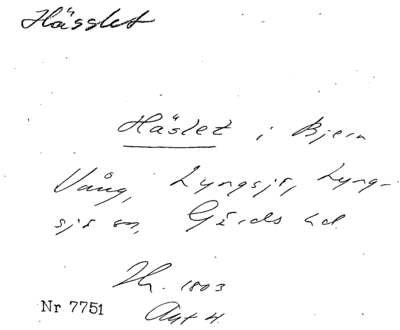 Hässlet
Häslet i Bjern
Vång, Lyngsjö, Lyng-
sjö sn, Gärds hd.
1803
Nr 7751
Akt 4.